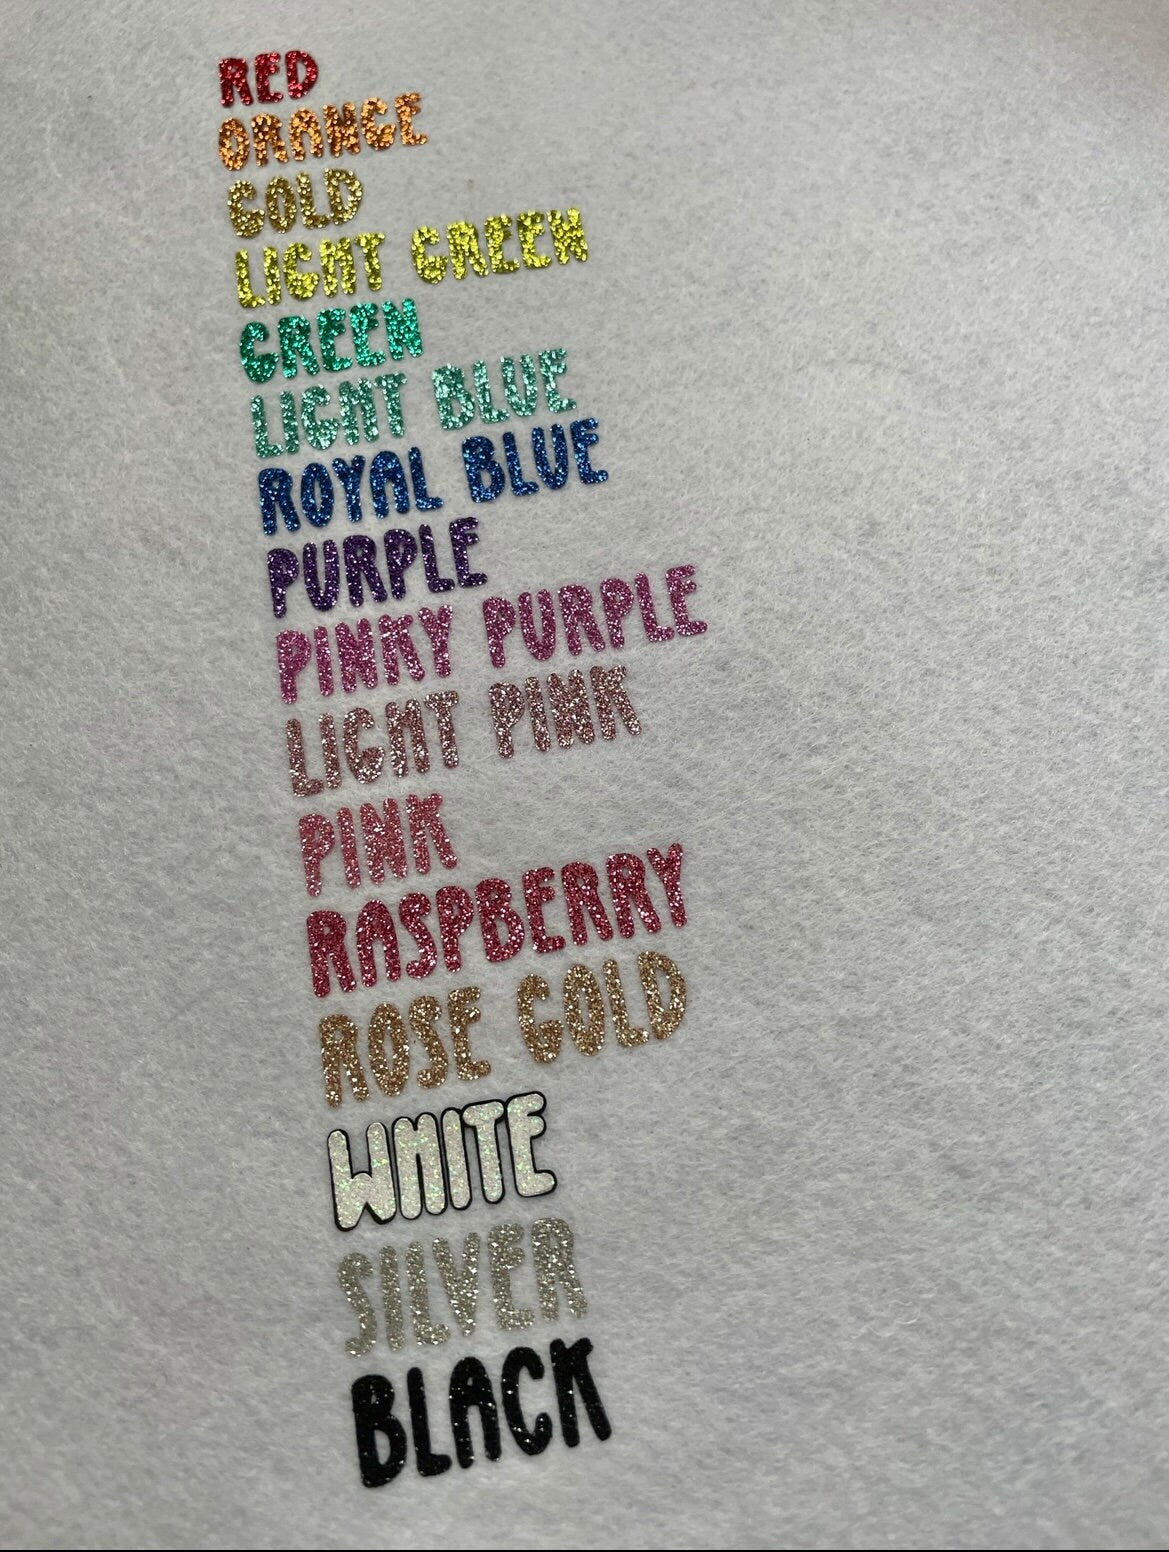 RED
ORANGE
GOLD
LIGHT GREEN
GREEN
LIGHT BLUE
ROYAL BLUE
PURPLE
PINKY PURPLE
LIGHT PINK
PINK
RASPBERRY
ROSE GOLD
WHITE
SILVER
BLACK